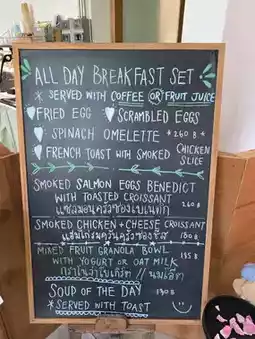 ALL DAY BREAKFAST SET
* SERVED WITH COFFEE OR FRUIT JUICE
FRIED EGG SCRAMBLED EGGS
SPINACH OMELETTE *260฿*
FRENCH TOAST WITH SMOKED CHICKEN SLICE
SMOKED SALMON EGGS BENEDICT
WITH TOASTED CROISSANT
260฿
SMOKED CHICKEN + CHEESE CROISSANT
180฿
MIXED FRUIT GRANOLA BOWL
WITH YOGURT OR OAT MILK
185฿
SOUP OF THE DAY 130฿
* SERVED WITH TOAST